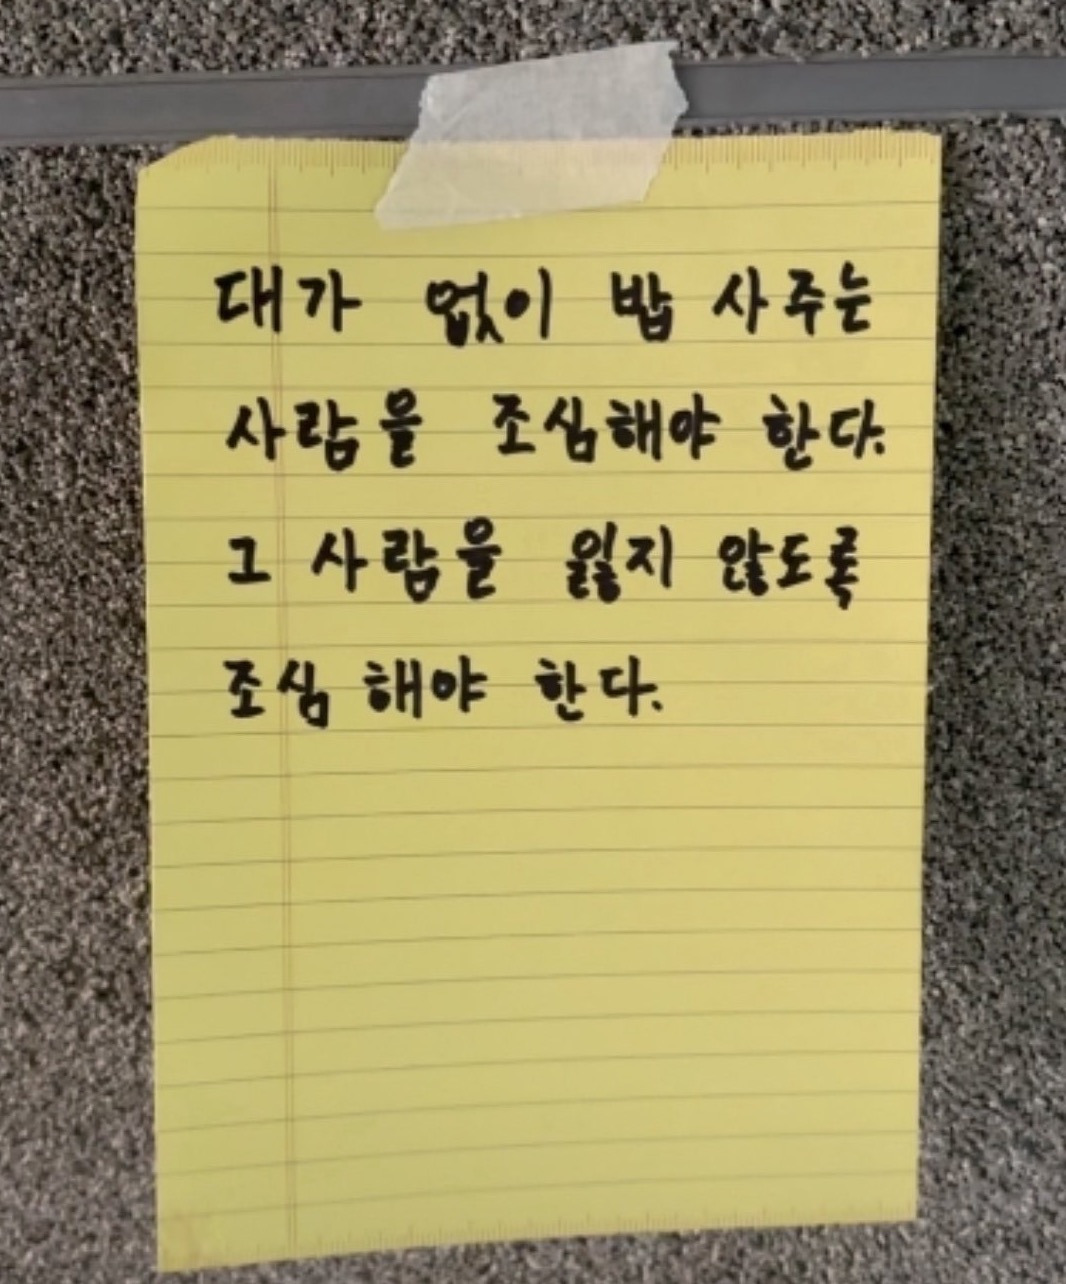 대가 없이 밥 사주는
사람을 조심해야 한다.
그 사람을 잃지 않도록
조심해야 한다.